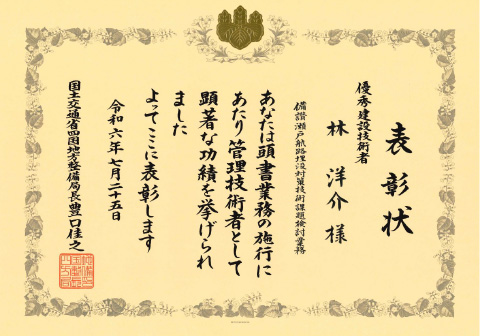 表彰状
優秀建設技術者
林 洋介 様
備讃瀬戸航路埋没対策技術課題検討業務
あなたは頭書業務の施行に
あたり管理技術者として
顕著な功績を挙げられ
ました
よってここに表彰します
令和六年七月二十五日
国土交通省四国地方整備局長豊口佳之